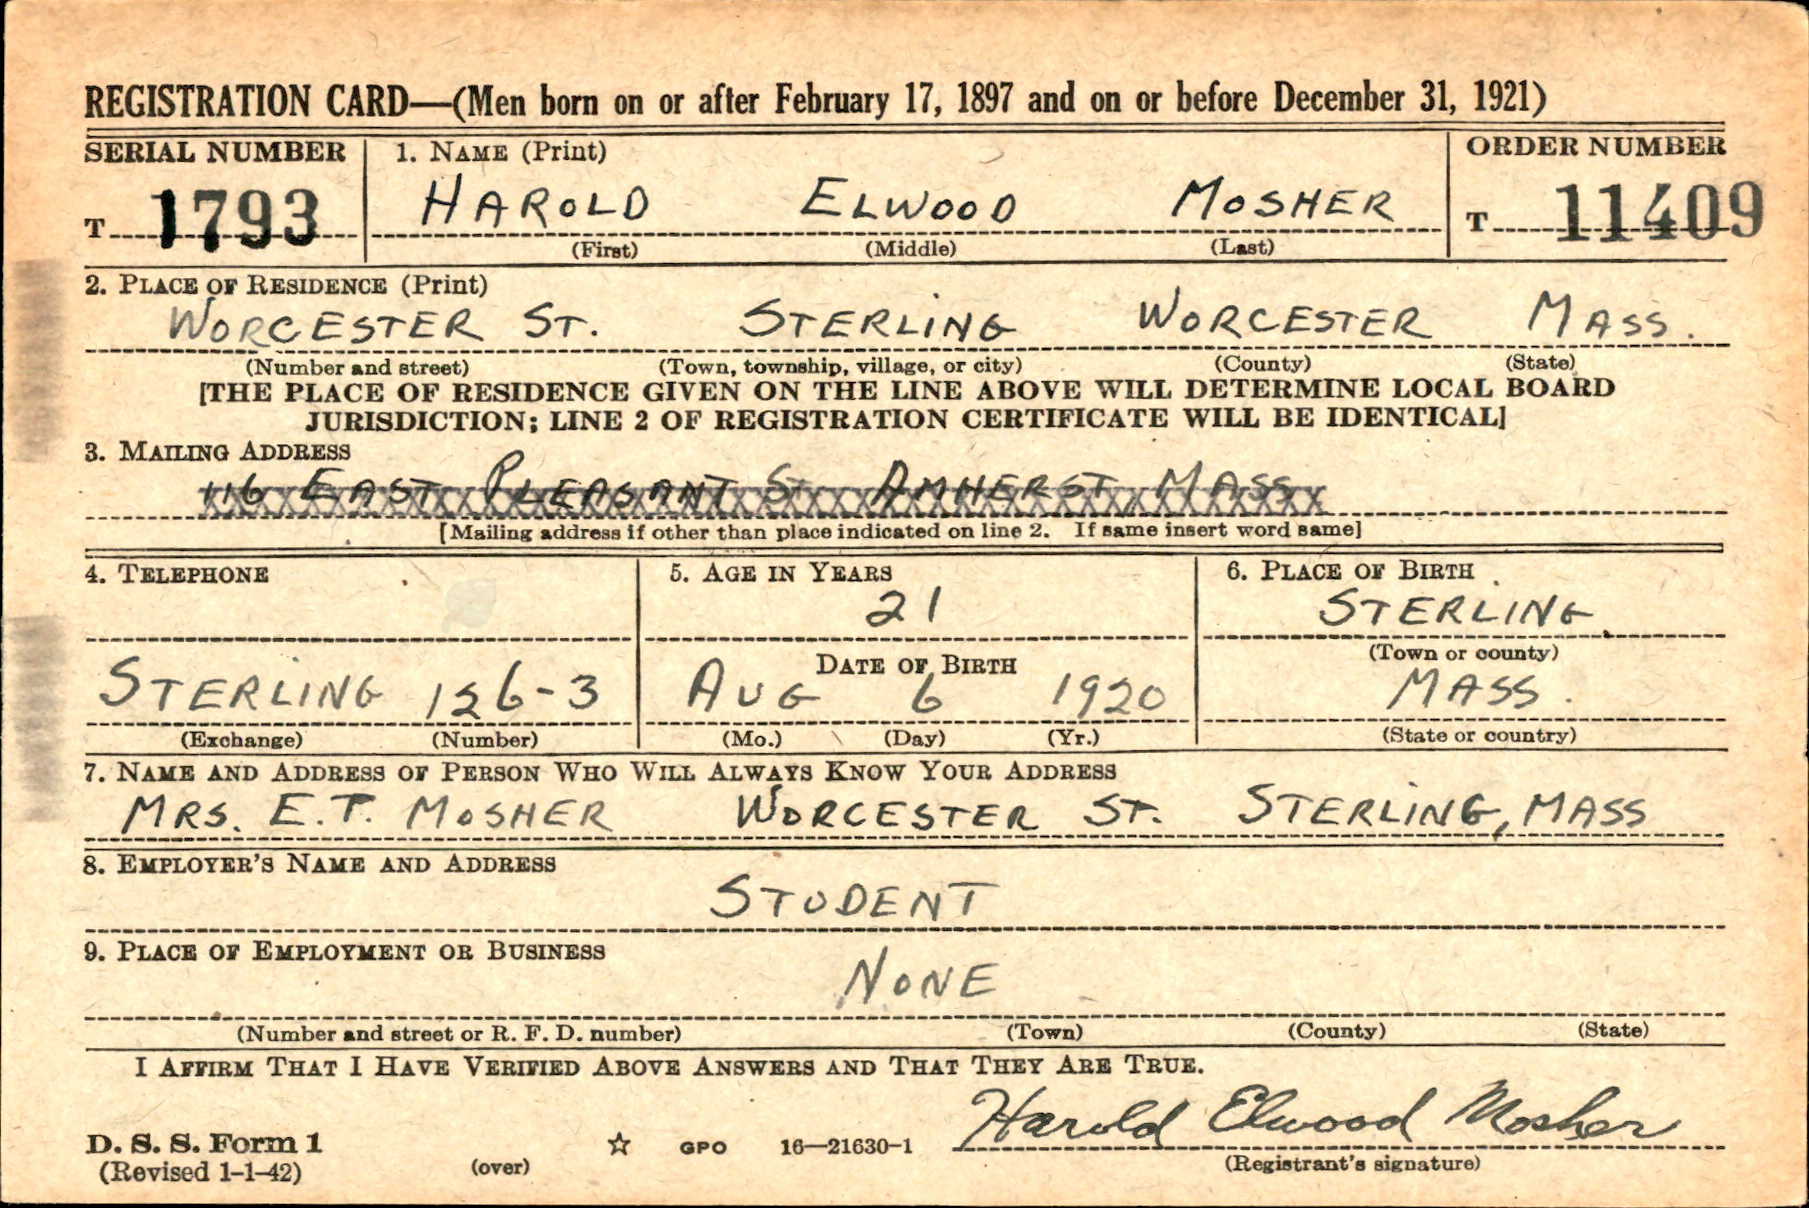 REGISTRATION CARD—(Men born on or after February 17, 1897 and on or before December 31, 1921)
SERIAL NUMBER 1. NAME (Print) ORDER NUMBER
T 1793 HAROLD ELWOOD MOSHER T 11409
(First) (Middle) (Last)
2. PLACE OF RESIDENCE (Print)
WORCESTER ST. STERLING WORCESTER MASS.
(Number and street) (Town, township, village, or city) (County) (State)
[THE PLACE OF RESIDENCE GIVEN ON THE LINE ABOVE WILL DETERMINE LOCAL BOARD
JURISDICTION; LINE 2 OF REGISTRATION CERTIFICATE WILL BE IDENTICAL]
3. MAILING ADDRESS
116 EAST PLEASANT ST AMHERST MASS
[Mailing address if other than place indicated on line 2. If same insert word same]
4. TELEPHONE 5. AGE IN YEARS 6. PLACE OF BIRTH
21 STERLING
DATE OF BIRTH (Town or county)
STERLING 126-3 AUG 6 1920 MASS.
(Exchange) (Number) (Mo.) (Day) (Yr.) (State or country)
7. NAME AND ADDRESS OF PERSON WHO WILL ALWAYS KNOW YOUR ADDRESS
MRS. E.T. MOSHER WORCESTER ST. STERLING, MASS
8. EMPLOYER'S NAME AND ADDRESS
STUDENT
9. PLACE OF EMPLOYMENT OR BUSINESS
NONE
(Number and street or R. F. D. number) (Town) (County) (State)
I AFFIRM THAT I HAVE VERIFIED ABOVE ANSWERS AND THAT THEY ARE TRUE.
Harold Elwood Mosher
D. S. S. Form 1 GPO 16—21630-1
(Revised 1-1-42) (over) (Registrant's signature)